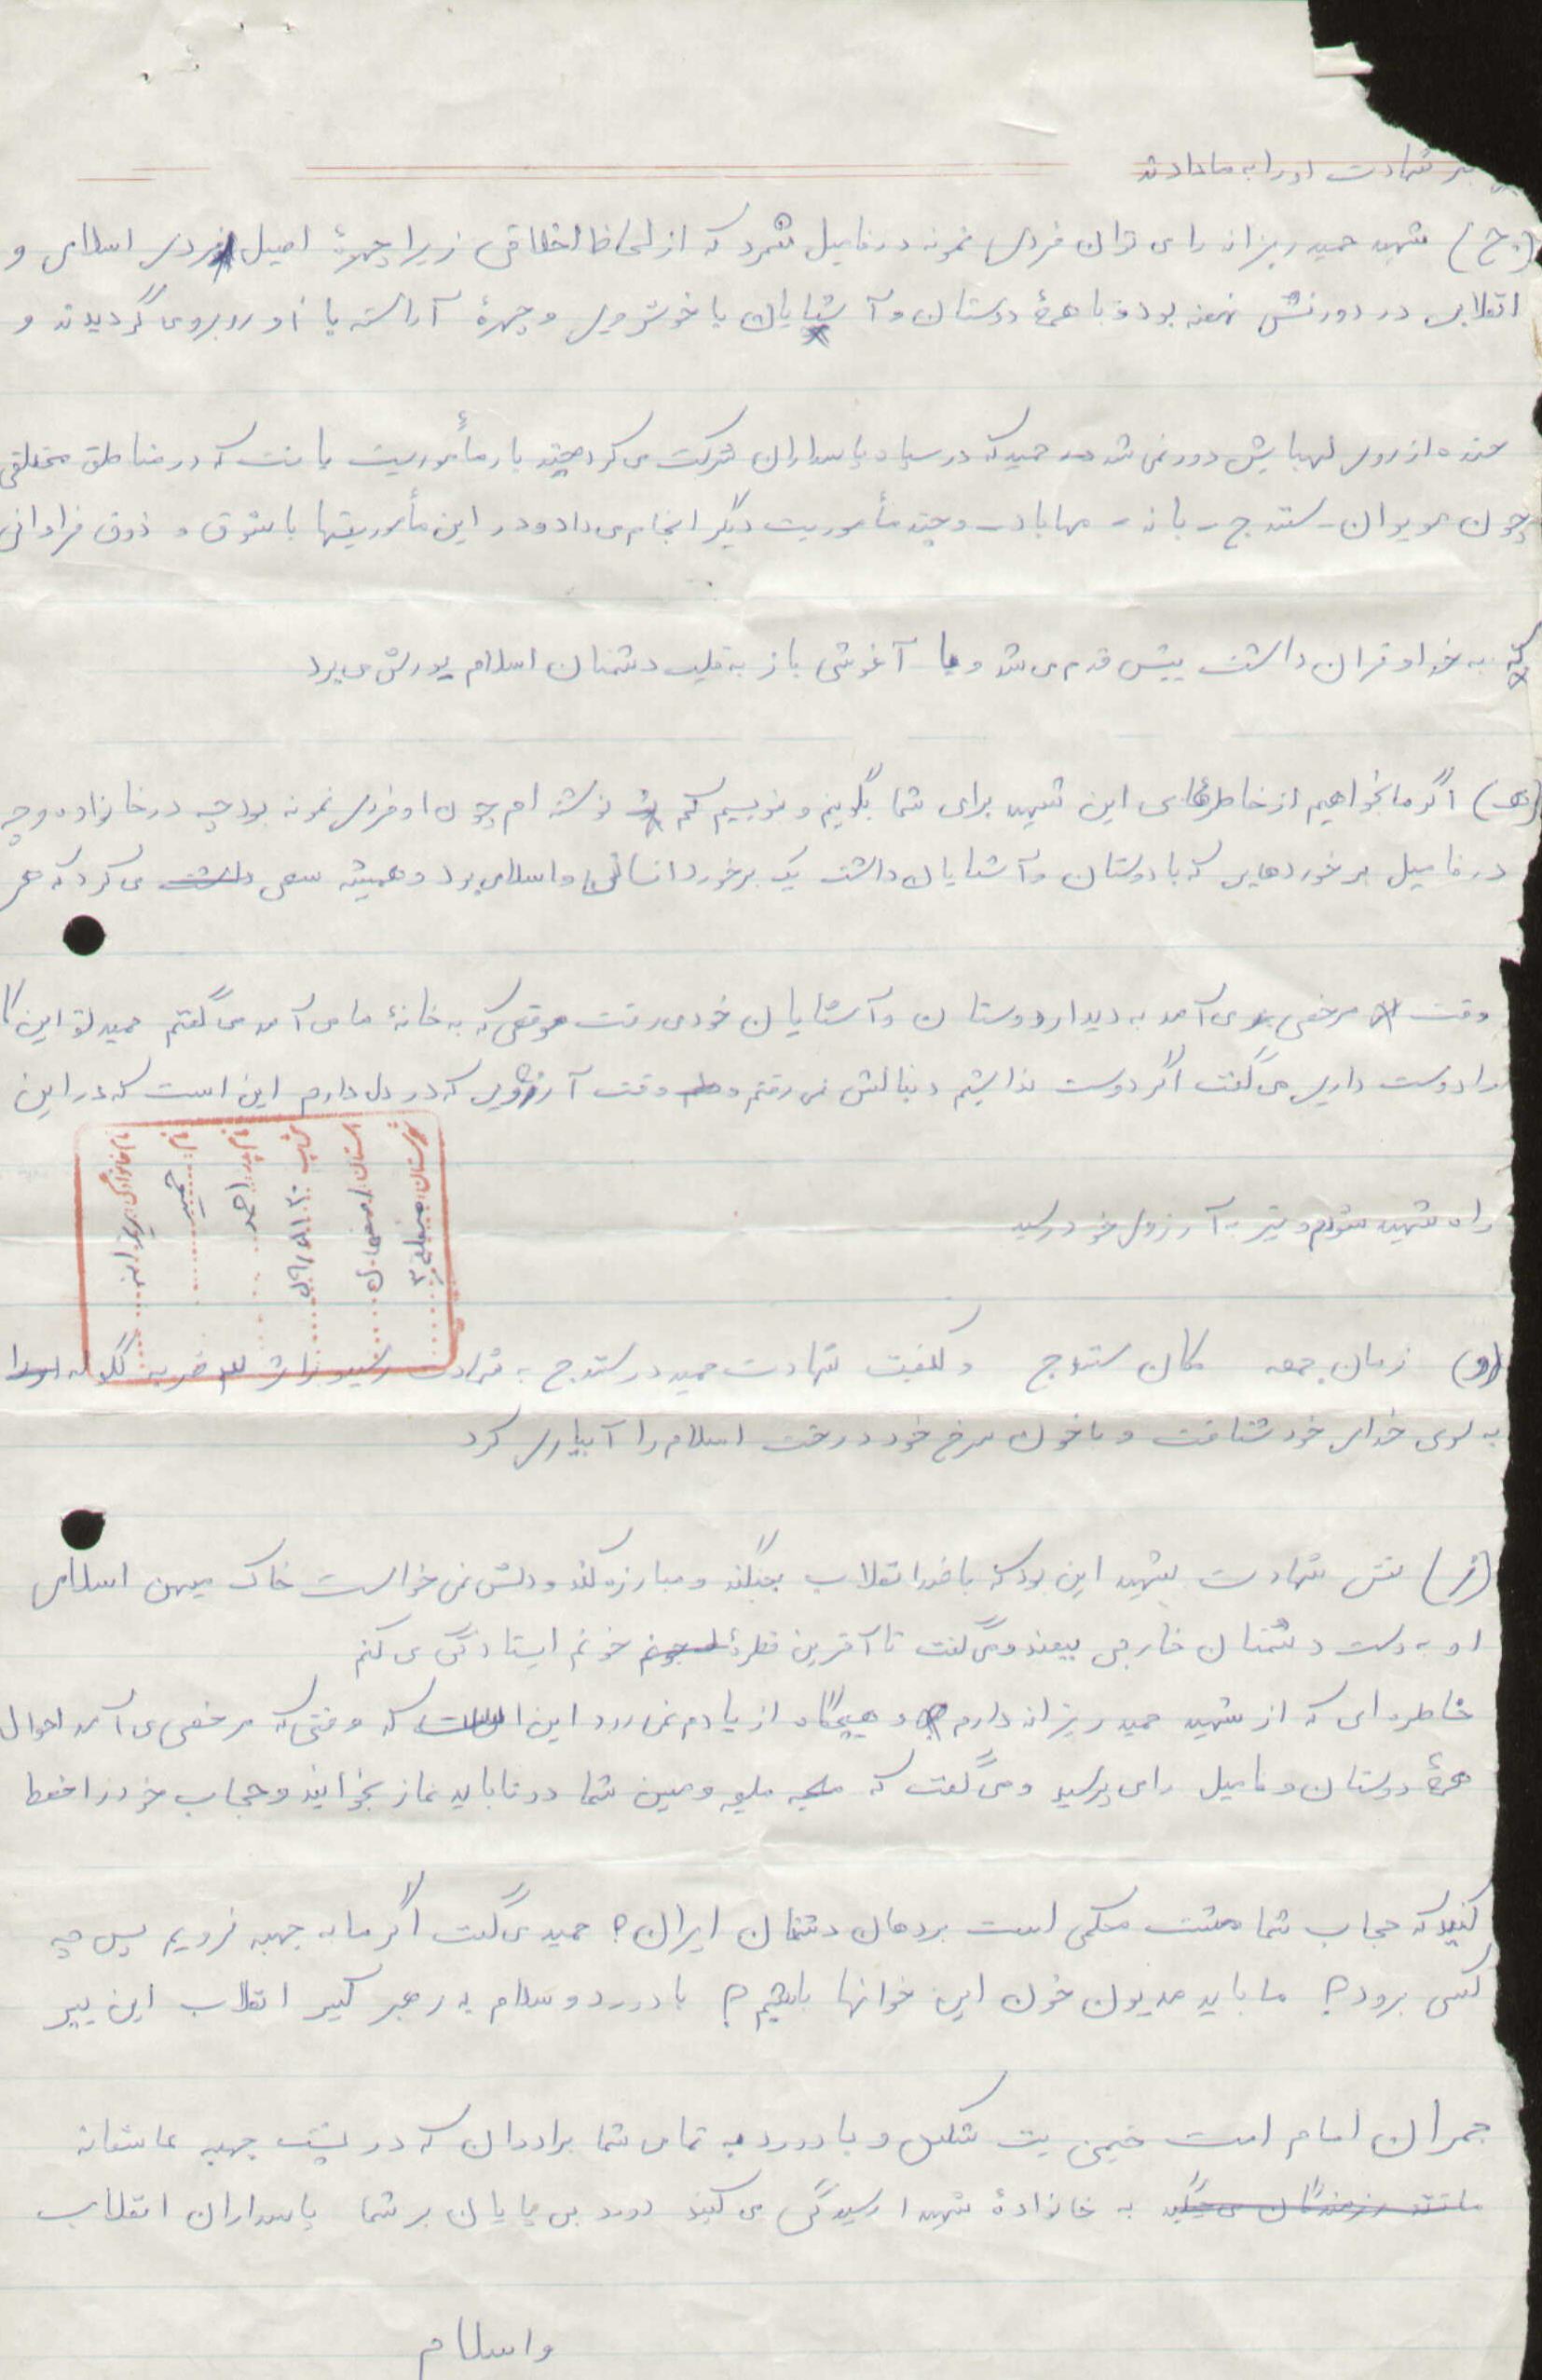 شهادت او را به ما دادند
(ج) شهید حمید ریزانه را می توان فردی نمونه در فامیل شمرد که از لحاظ اخلاقی زیرا چهرۀ اصیل فردی اسلامی و
انقلابی در دورنش نهفته بود و با همۀ دوستان و آشنایان با خوشرویی و چهرۀ آراسته با او روبروی گردیدند و
خنده از روی لبهایش دور نمی شد حمید که در سپاه پاسداران شرکت می کرد چند بار مأموریت یافت که در مناطق مختلفی
چون مریوان - سنندج - بانه - مهاباد - و چند مأموریت دیگر انجام می داد و در این مأموریتها با شوق و ذوق فراوانی
که به خدا و قران داشت پیش قدم می شد و با آغوشی باز به قلب دشمنان اسلام یورش می برد
اگر ما بخواهیم از خاطرهای این شهید برای شما بگویم و نویسیم کم نوشته ام چون او فردی نمونه بود چه در خانواده و چه
در فامیل برخوردهایی که با دوستان و آشنایان داشت یک برخورد انسانی و اسلامی بود و همیشه سعی داشت می کرد که هر
وقت مرخصی می آمد به دیدار دوستان و آشنایان خود می رفت موقعی که به خانۀ ما می آمد می گفتم حمید تو این کا
را دوست داری می گفت اگر دوست نداشتم دنبالش نمی رفتم و وقت آرزویی که در دل دارم این است که در این
راه شهید شوم و نیز به آرزوی خود رسید
نام خانوادگی: ریزانه
نام: حمید
نام پدر: احمد
استان: اصفهان
شهرستان: منطقه ۳
(و) زمان جمعه مکان سنندج و کیفیت شهادت حمید در سنندج به شهادت رسید براثر ضربه گلوله او را
به سوی خدای خود شتافت و با خون سرخ خود درخت اسلام را آبیاری کرد
(ز) نقش شهادت شهید این بود که با ضد انقلاب بجنگد و مبارزه کند و دلش نمی خواست خاک میهن اسلامی
او به دست دشمنان خارجی بیفتد و می گفت تا آخرین قطرۀ خونم ایستادگی می کنم
خاطره ای که از شهید حمید ریزانه دارم و هیچگاه از یادم نمی رود این است که وقتی که مرخصی می آمد احوال
همۀ دوستان و فامیل را می پرسید و می گفت که ملیه و مهین شما دوتا باید نماز بخوانید و حجاب خود را حفظ
کنید که حجاب شما مشت محکمی است بر دهان دشمنان ایران؟ حمید می گفت اگر ما به جبهه نرویم پس چه
کسی برود؟ ما باید مدیون خون این خوانها باشیم؟ با درود و سلام به رهبر کبیر انقلاب این پیر
جمران امام امت خمینی بت شکن و با درود به تمامی شما برادران که در پشت جبهه عاشقانه
مانند رزمندگان می جنگید به خانوادۀ شهدا رسیدگی می کنید درود بی پایان بر شما پاسداران انقلاب
واسلام